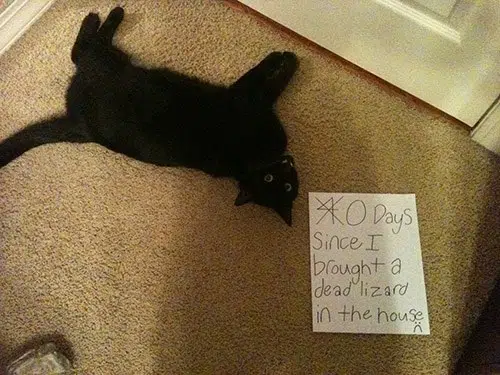 0 Days
Since I
brought a
dead lizard
in the house